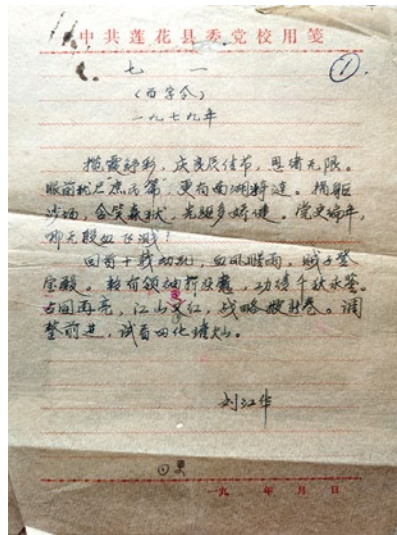 中共莲花县委党校用笺
①
七一
(百字令)
一九七九年
揽霞 彩，庆良辰佳节，思绪无限。
眼前犹见"庶民 "，更有南湖 涟。捐躯
沙场，含笑森 ，先驱多娇健。党史编年，
哪无殷血飞溅！
回首十载动乱，血风腥雨，贼子登
宝殿。赖有领袖挥 ，功绩千秋永 。
古国再亮，江山更红，战略披新卷。调
整前进，试看四化璀灿。
刘江华
更
一九 年 月 日